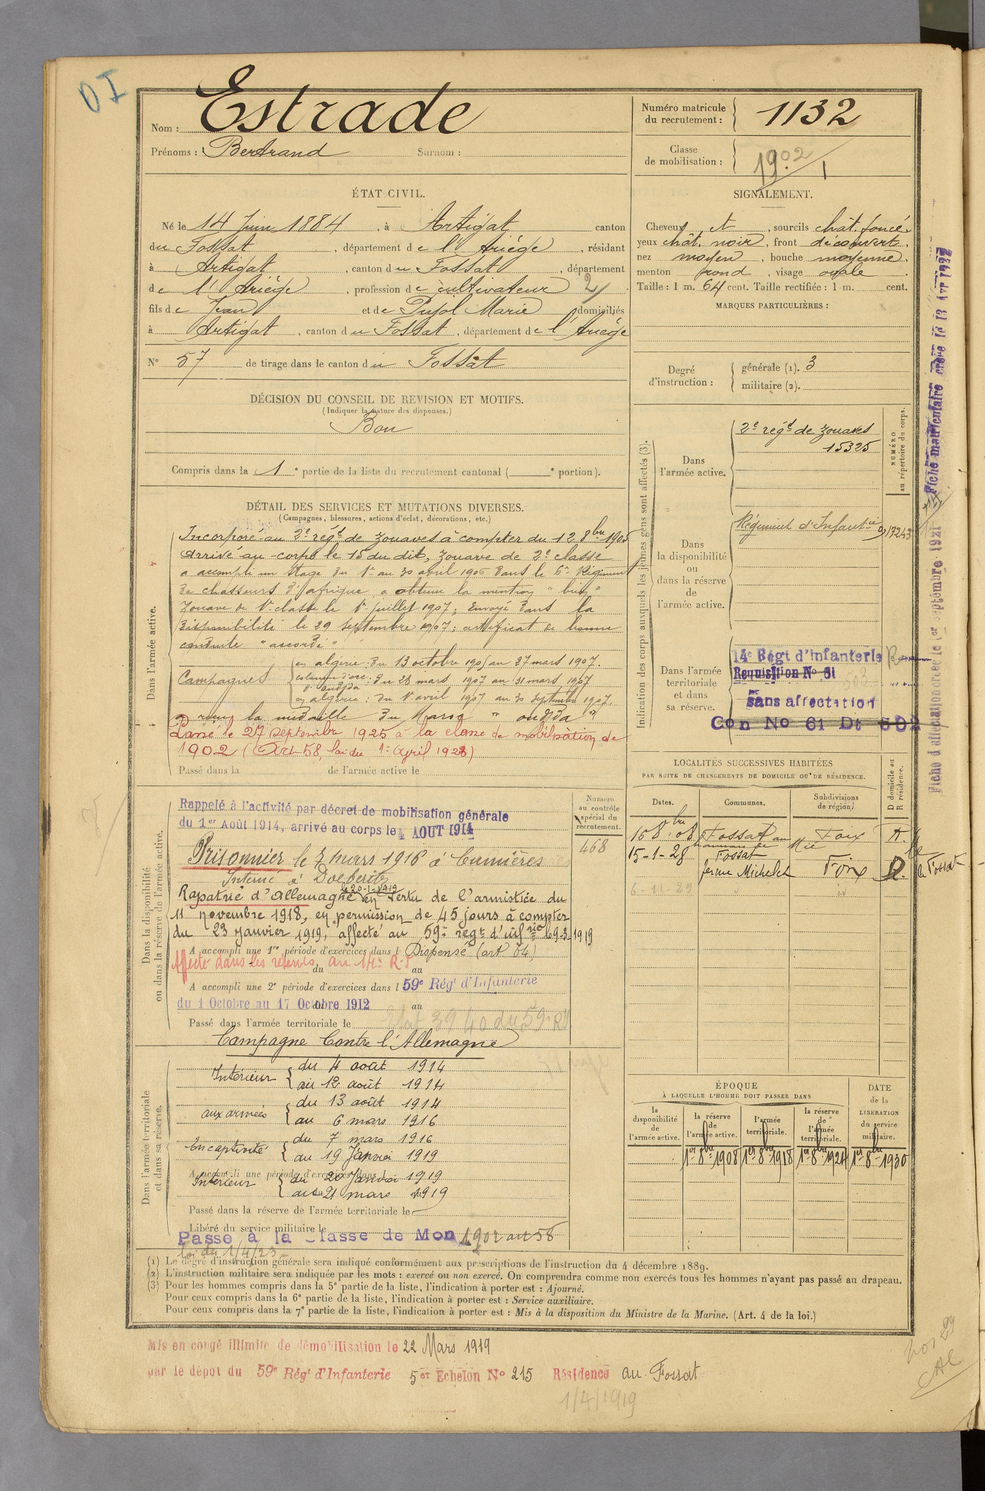 DI
Nom : Estrade
Prénoms : Bertrand Surnom :
Numéro matricule du recrutement : 1132
Classe de mobilisation : 1902
ÉTAT CIVIL.
Né le 14 Juin 1884, à Artigat canton
du Fossat, département de l'Ariège, résidant
à Artigat, canton du Fossat, département
de l'Ariège, profession de cultivateur
fils de Jean et de Pujol Marie domiciliés
à Artigat, canton du Fossat, département de l'Ariège
N° 57 de tirage dans le canton du Fossat
SIGNALEMENT.
Cheveux et , sourcils chât. foncé
yeux chât. noir, front découvert,
nez moyen, bouche moyenne,
menton rond, visage ovale
Taille : 1 m. 64 cent. Taille rectifiée : 1 m. cent.
MARQUES PARTICULIÈRES :
Degré d'instruction : générale (1). 3
militaire (2).
DÉCISION DU CONSEIL DE REVISION ET MOTIFS.
(Indiquer la nature des dispenses.)
Bon
Compris dans la 1e partie de la liste du recrutement cantonal ( e portion).
DÉTAIL DES SERVICES ET MUTATIONS DIVERSES.
(Campagnes, blessures, actions d'éclat, décorations, etc.)
Dans l'armée active.
Incorporé au 2e régt de zouaves à compter du 12 8bre 1905
Arrivé au corps le 15 du dit, zouave de 2e classe
a accompli un stage du 1er au 30 avril 1906 dans le 6e Régiment
de chasseurs d'Afrique, a obtenu la mention "bien"
Zouave de 1e classe le 1er juillet 1907; Envoyé dans la
disponibilité le 29 septembre 1907; certificat de bonne
conduite "accordé"
Campagnes
en algérie : du 13 octobre 1905 au 27 mars 1907.
du 28 mars 1907 au 31 mars 1907
en algérie : du 1er avril 1907 au 30 septembre 1907.
a reçu la médaille du Maroc "oudjda"
Passé le 27 Septembre 1925 à la classe de mobilisation de
1902 (Art 58, loi du 1er Avril 1923)
Passé dans la de l'armée active le
Indication des corps auxquels les jeunes gens sont affectés (3).
NUMÉRO au répertoire du corps.
Dans l'armée active.
2e régt de zouaves
15325
Dans la disponibilité ou dans la réserve de l'armée active.
Régiment d'Infantie
Dans l'armée territoriale et dans sa réserve.
14e Régt d'Infanterie
Requisition N° 61
sans affectation
Con No 61 Dt 502
LOCALITÉS SUCCESSIVES HABITÉES
PAR SUITE DE CHANGEMENTS DE DOMICILE OU DE RÉSIDENCE.
Dates. Communes. Subdivisions de région. D domicile ou R résidence.
16 8bre 08 Fossat Foix
15-1-28 Fossat Foix R.
ferme Michelet
6-11-29
Dans la disponibilité ou dans la réserve de l'armée active.
Numéro au contrôle spécial du recrutement.
468
Rappelé à l'activité par décret de mobilisation générale
du 1er Août 1914, arrivé au corps le 4 AOUT 1914
Prisonnier le 7 mars 1916 à Cumières
Interné à
Rapatrié d'allemagne le 20-1-1919 en vertu de l'armistice du
11 novembre 1918, en permission de 45 jours à compter
du 23 janvier 1919, affecté au 59e régt d'infrie
A accompli une 1re période d'exercices dans l Dispensé (art 84)
du au
A accompli une 2e période d'exercices dans l 59e Régt d'Infanterie
du 1 Octobre au 17 Octobre 1912 au
Passé dans l'armée territoriale le
Dans l'armée territoriale et dans sa réserve.
Campagne Contre l'Allemagne
Intérieur du 4 août 1914
au 12 août 1914
aux armées du 13 août 1914
au 6 mars 1916
En captivité du 7 mars 1916
au 19 Janvier 1919
A accompli une période d'exercices dans
Intérieur du 20 Janvier 1919
au 21 mars 1919
Passé dans la réserve de l'armée territoriale le
Libéré du service militaire le
Passé à la Classe de Mon 1902 art 58
loi du 1/4/23
ÉPOQUE
À LAQUELLE L'HOMME DOIT PASSER DANS
DATE de la LIBÉRATION du service militaire.
la disponibilité de l'armée active.
la réserve de l'armée active.
l'armée territoriale.
la réserve de l'armée territoriale.
1er 8bre 1908 1er 8bre 1918 1er 8bre 1924 1er 8bre 1930
(1) Le degré d'instruction générale sera indiqué conformément aux prescriptions de l'instruction du 4 décembre 1889.
(2) L'instruction militaire sera indiquée par les mots : exercé ou non exercé. On comprendra comme non exercés tous les hommes n'ayant pas passé au drapeau.
(3) Pour les hommes compris dans la 5e partie de la liste, l'indication à porter est : Ajourné.
Pour ceux compris dans la 6e partie de la liste, l'indication à porter est : Service auxiliaire.
Pour ceux compris dans la 7e partie de la liste, l'indication à porter est : Mis à la disposition du Ministre de la Marine. (Art. 4 de la loi.)
Mis en congé illimité de démobilisation le 22 Mars 1919
par le dépôt du 59e Régt d'Infanterie 5me Echelon N° 215 Résidence au Fossat
1/4/1919